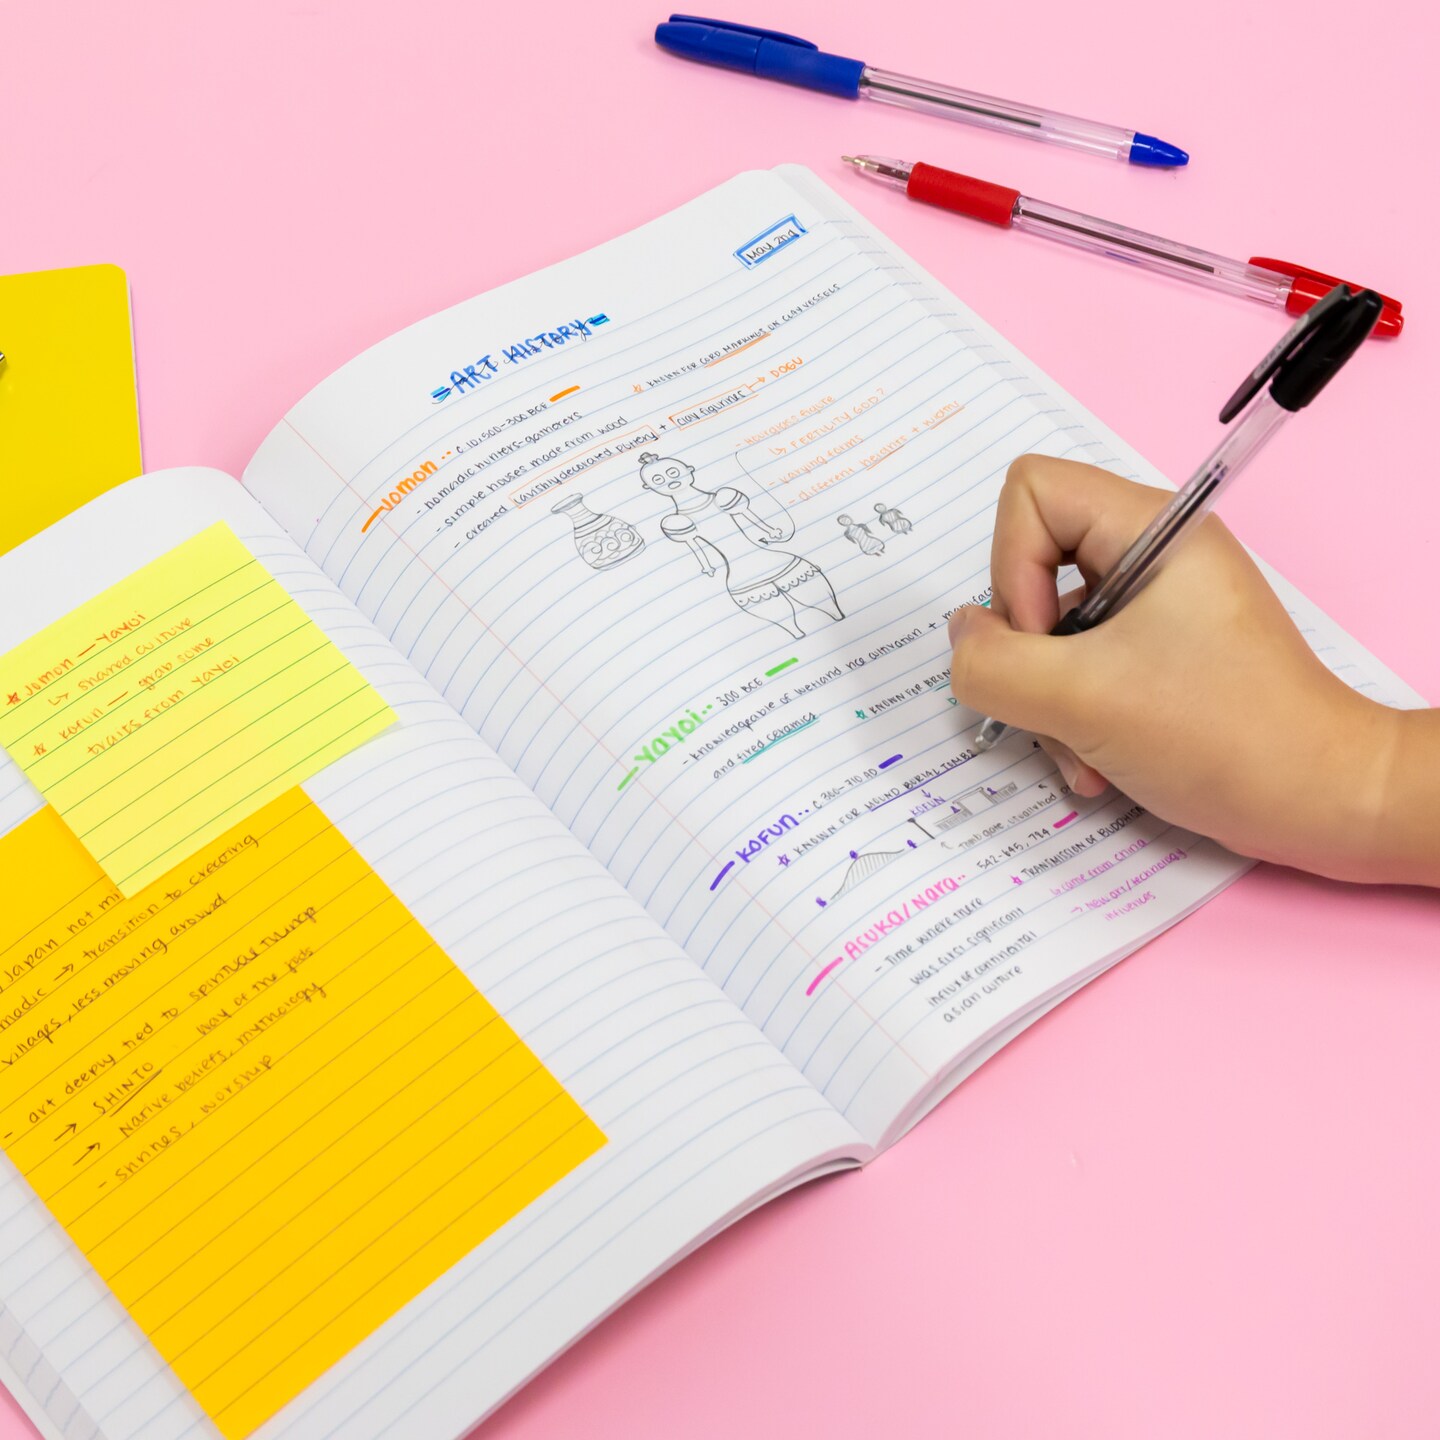 May 2nd
ART HISTORY
Jomon.. C 10,500-300 BCE
☆ KNOWN FOR CORD MARKINGS ON CLAY VESSELS
- nomadic hunters-gatherers
- simple houses made from wood
- created lavishly decorated pottery + clay figurines → DOGU
- Hourglass figure
↳ FERTILITY GOD?
- varying forms
- different heights + width
Yayoi.. 300 BCE
- knowledgeable of wetland rice cultivation +
and fired ceramics
☆ KNOWN FOR
KOFUN.. C 300-710 AD
☆ KNOWN FOR MOUND BURIAL TOMBS
KOFUN
Tomb gate, usually
ASUKA/Nara.. 542-645, 784
- Time where there
was first significant
influx of continental
asian culture
☆ TRANSMISSION OF BUDDHISM
↳ came from China
→ New art/technology
influences
☆ Jomon — Yayoi
↳ shared culture
☆ Kofun — grab some
traits from Yayoi
Japan not
→ transition to creating
villages, less moving around
- art deeply tied to spiritual
→ SHINTO way of the gods
→ Native beliefs, mythology
- shrines, worship